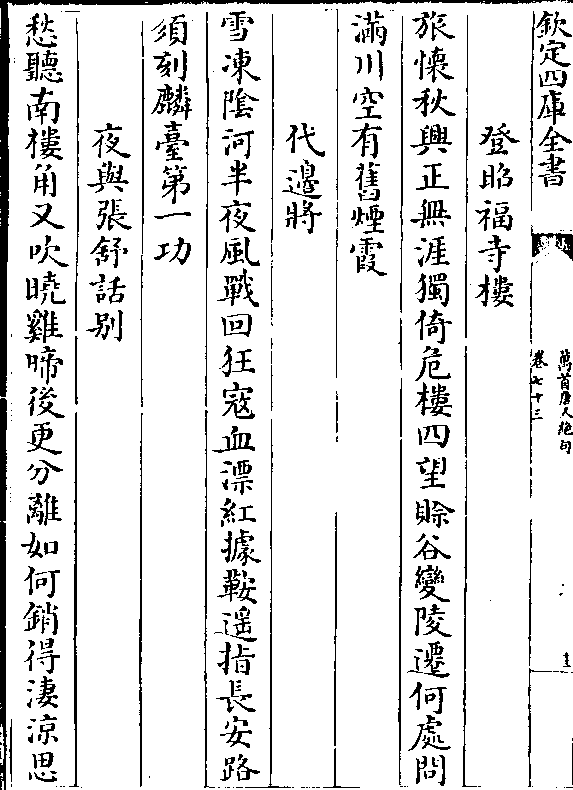 欽定四庫全書
萬首唐人絶句
卷七十三
登昭福寺樓
旅懷秋興正無涯獨倚危樓四望賒谷變陵遷何處問
滿川空有舊煙霞
代邉將
雪凍隂河半夜風戰回狂寇血漂紅據鞍遥指長安路
須刻麟臺第一功
夜與張舒話别
愁聽南樓角又吹曉雞啼後更分離如何銷得淒凉思